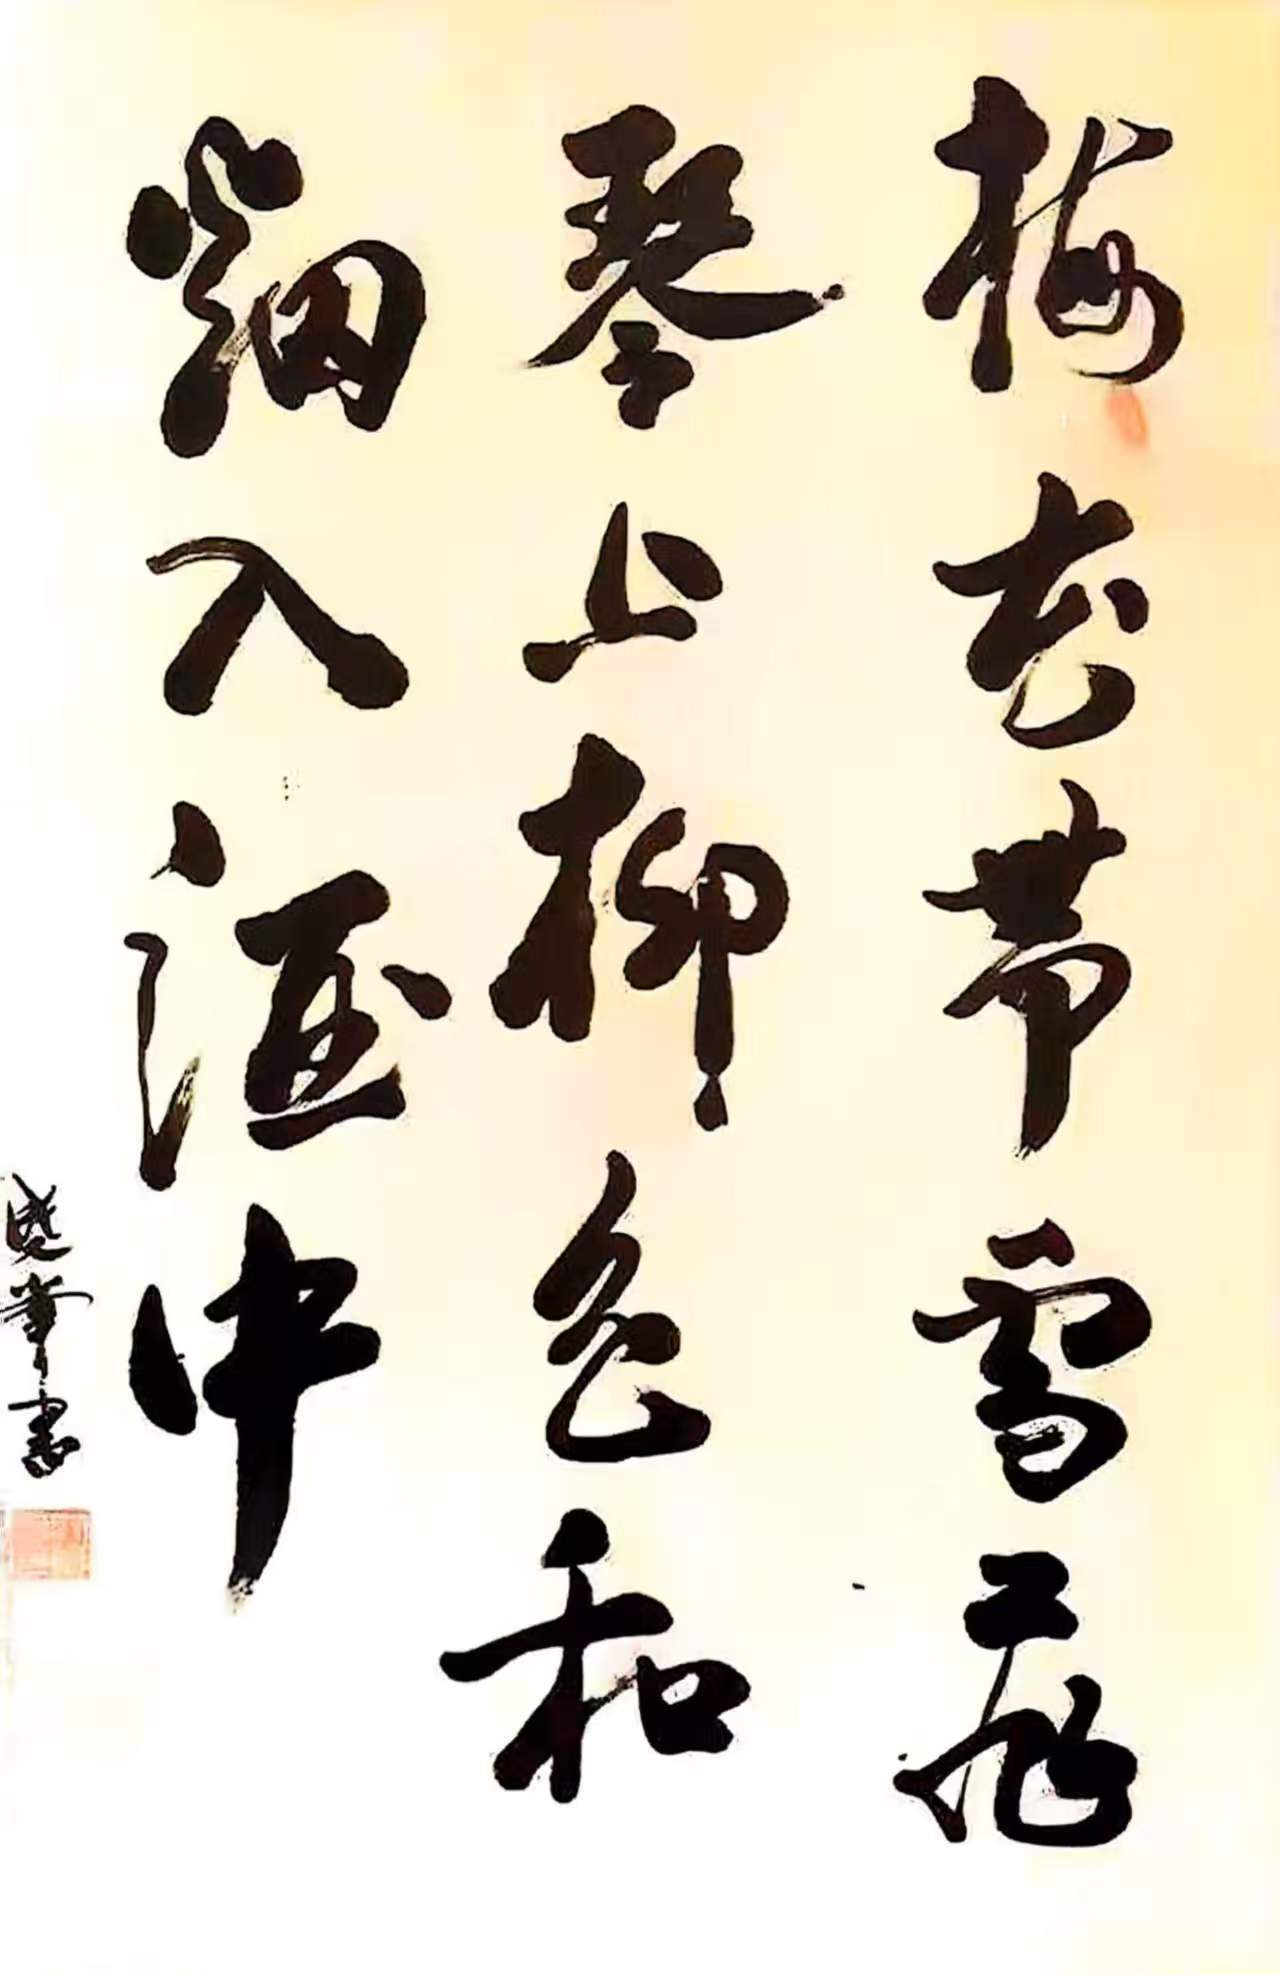 梅花带雪飞
琴上柳色和
烟入酒中